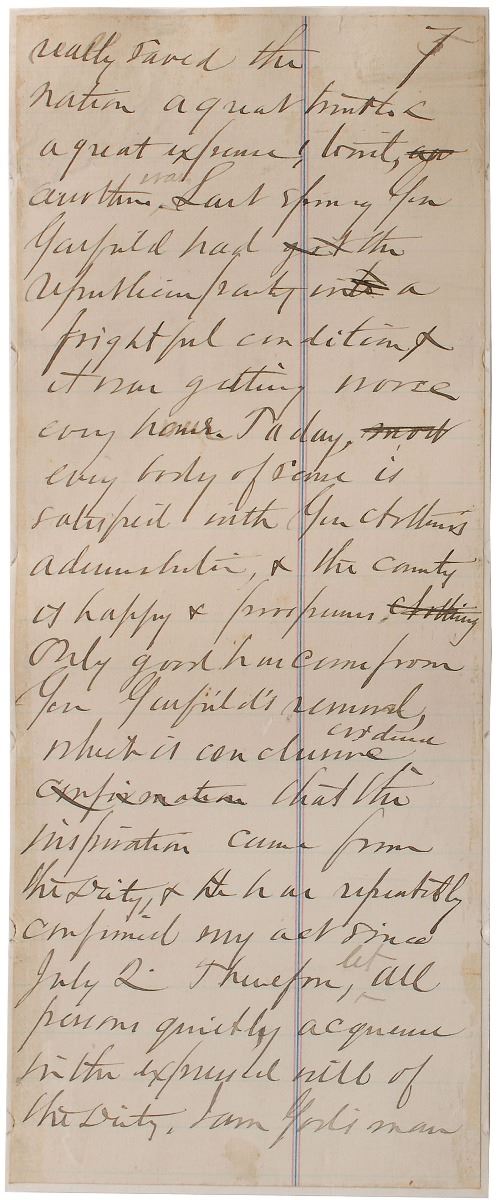 7
really saved the
nation a great trouble &
a great expense,
another. was Last Spring Gen
Garfield had got the
republican party into a
frightful condition &
it was getting worse
every hour. Today, most
every body of sense is
satisfied with Gen Arthur's
administration, & the country
is happy & prosperous.
Only good has come from
Gen Garfield's removal,
which is conclusive evidence
confirmation that the
inspiration came from
the Deity, & He has repeatedly
confirmed my act since
July 2. Therefore, let all
persons quietly acquiesce
in the expressed will of
the Deity. I am God's man